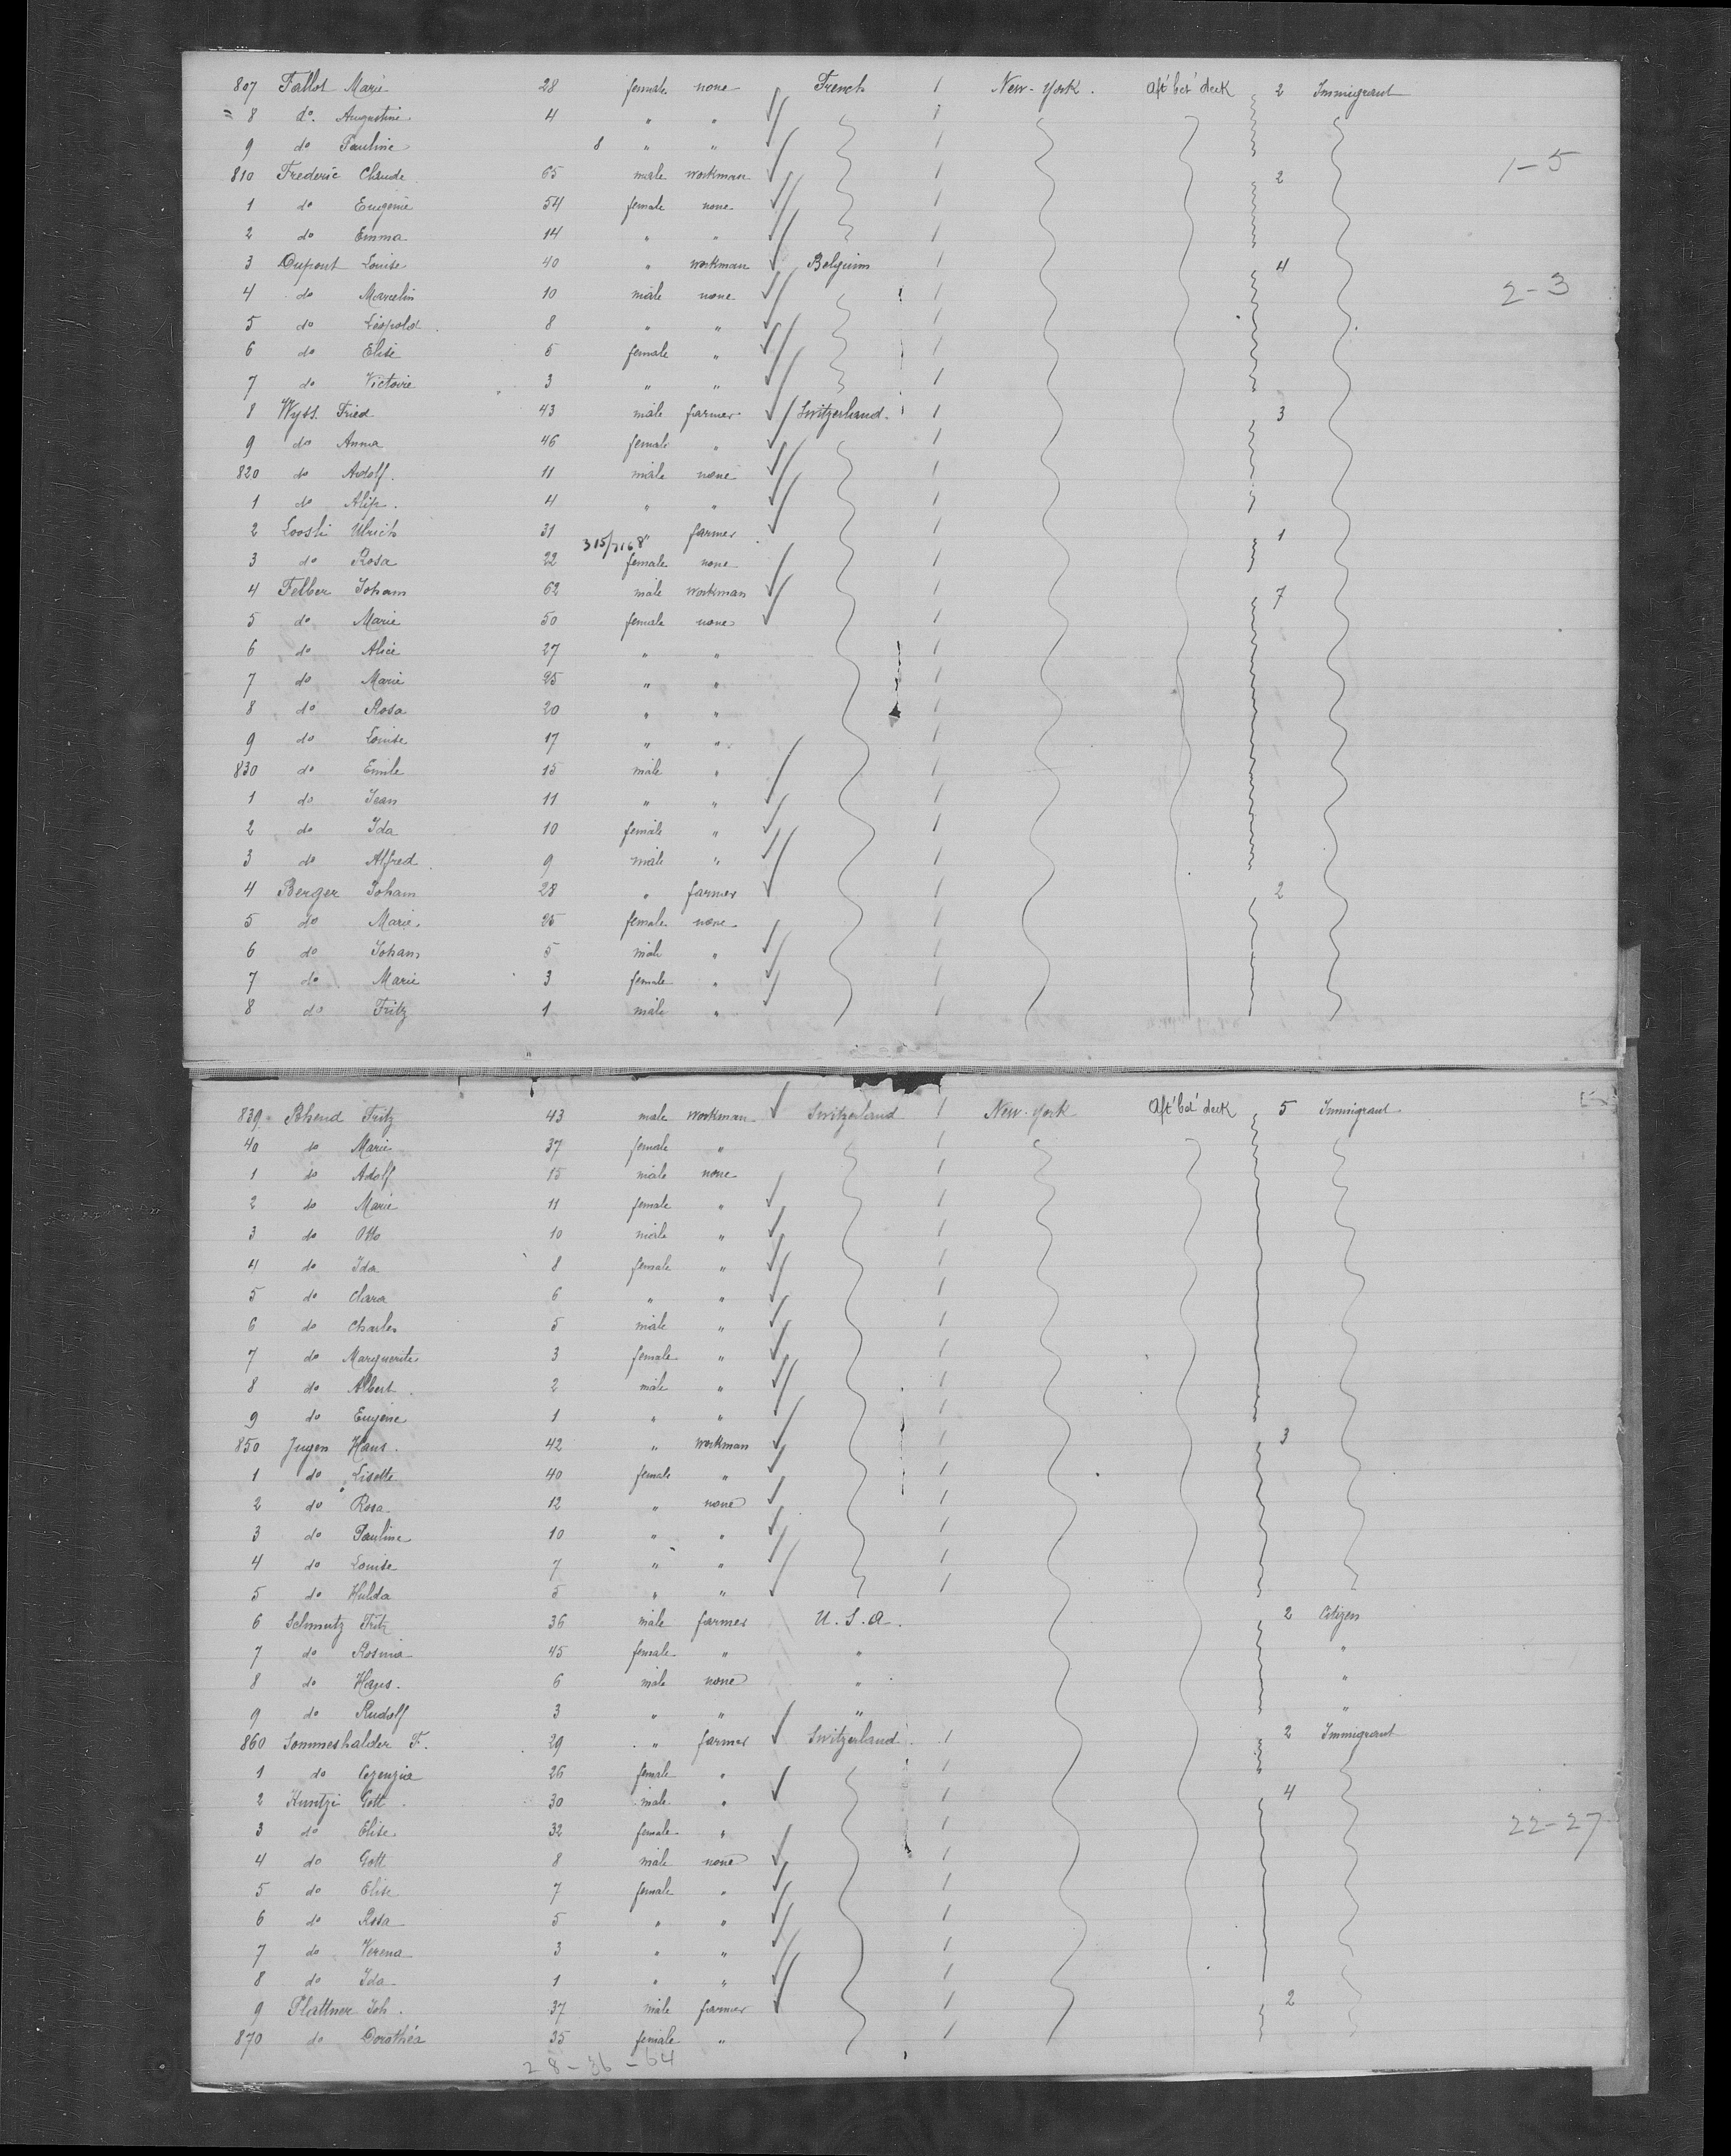 807 Fallot Marie 28 female none French / New-York. Aft' bet' deck 2 Immigrant
8 do. Augustine 4 " " /
9 do Pauline 8 " " /
1-5
810 Frederic Claude 65 male workman / 2
1 do Eugenie 54 female none /
2 do Emma 14 " " /
3 Dupont Louise 40 " workman Belgium / 4
2-3
4 do Marcelin 10 male none /
5 do Léopold 8 " " /
6 do Elise 6 female " /
7 do Victoire 3 " " /
8 Wyss. Fried 43 male farmer Switzerland. / 3
9 do Anna 46 female " /
820 do Adolf. 11 male none /
1 do 4 " " /
2 Loosli Ulrich 31 " farmer / 1
315/7168
3 do Rosa 22 female none /
4 Felber Joham 62 male workman / 7
5 do Marie 50 female none /
6 do Alice 27 " " /
7 do Marie 25 " " /
8 do Rosa 20 " " /
9 do Louise 17 " " /
830 do Emile 15 male " /
1 do Jean 11 " " /
2 do Ida 10 female " /
3 do Alfred 9 male " /
4 Berger Joham 28 " farmer / 2
5 do Marie. 25 female none /
6 do Joham 5 male " /
7 do Marie 3 female " /
8 do Fritz 1 male " /
839 Bhend Fritz 43 male workman Switzerland / New-York Aft' bet' deck 5 Immigrant
40 do Marie 37 female " /
1 do Adolf 15 male none /
2 do Marie 11 female " /
3 do Otto 10 male " /
4 do Ida 8 female " /
5 do Clara 6 " " /
6 do Charles 5 male " /
7 do Marguerite 3 female " /
8 do Albert. 2 male " /
9 do Eugène 1 " " /
850 Jugen Hans. 42 " workman / 3
1 do Lisette 40 female " /
2 do Rosa 12 " none /
3 do Pauline 10 " " /
4 do Louise 7 " " /
5 do Hulda 5 " " /
6 Schmutz Fritz 36 male farmer U.S.A. 2 Citizen
7 do Rosina 45 female " " "
8 do Hans. 6 male none " "
9 do Rudolf 3 " " " "
860 Sommerhalder F. 29 " farmer Switzerland / 2 Immigrant
1 do 26 female " /
2 Kuntzi Gott. 30 male " / 4
3 do Elise. 32 female " /
22-27
4 do Gott 8 male none /
5 do Elise 7 female " /
6 do Rosa 5 " " /
7 do Verena 3 " " /
8 do Ida 1 " " /
9 Plattner Joh. 37 male farmer / 2
870 do Dorothéa 35 female " /
28-36-64